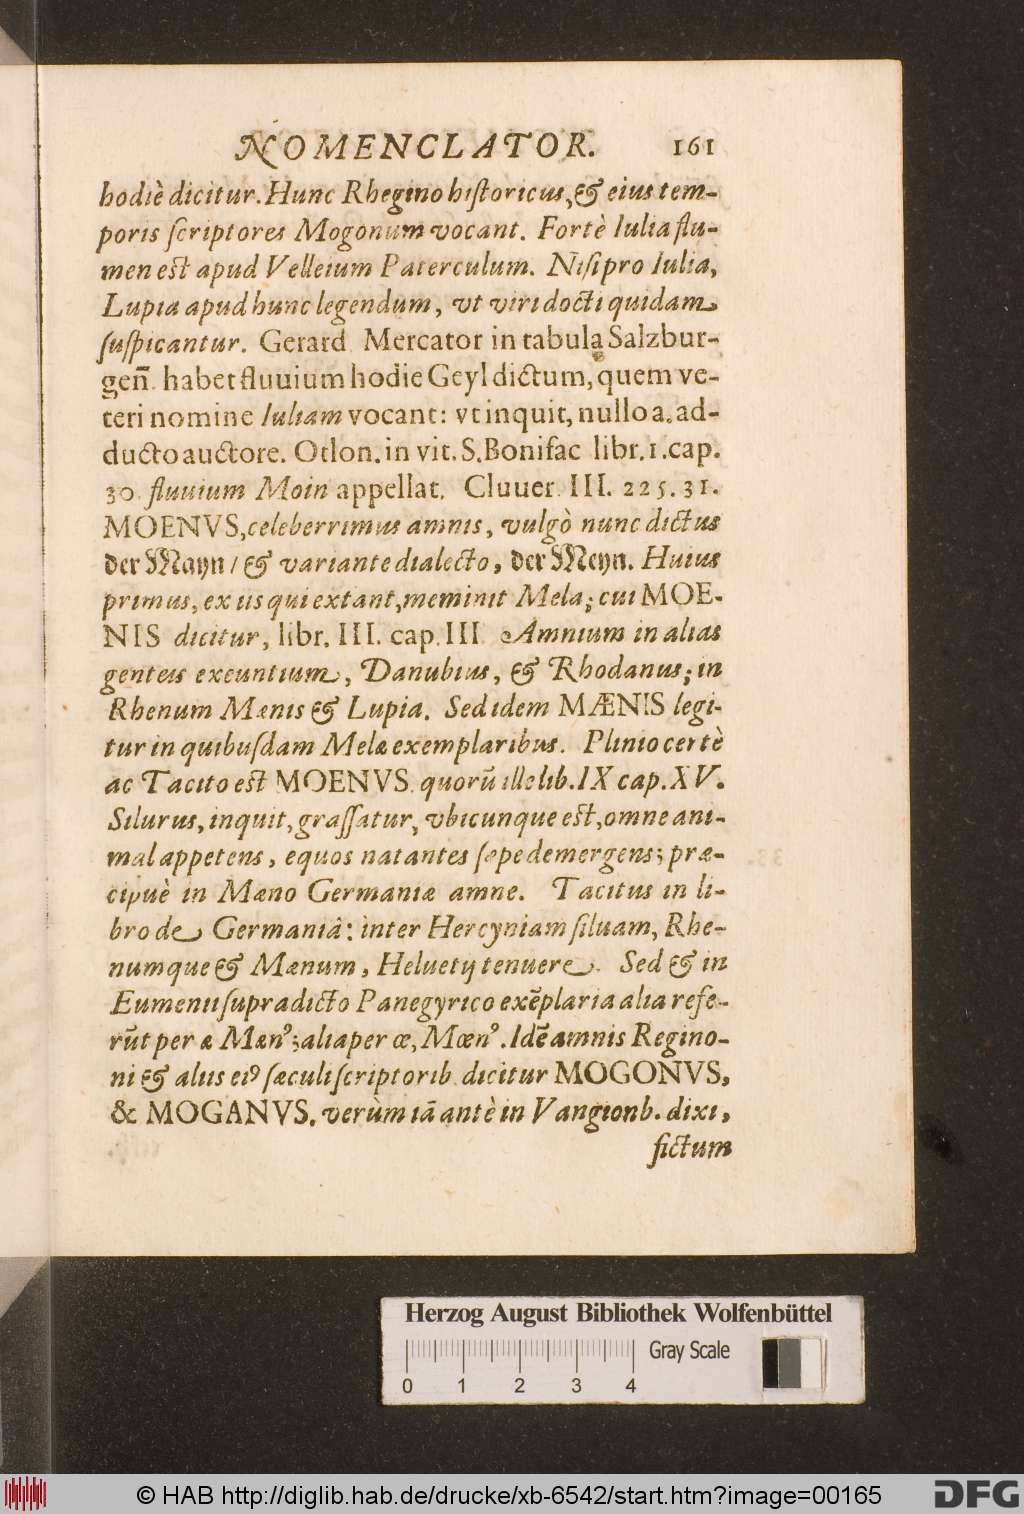 NOMENCLATOR. 161
hodiè dicitur. Hunc Rhegino historicus, & eius tem-
poris scriptores Mogonum vocant. Fortè Iulia flu-
men est apud Velleium Paterculum. Nisi pro Iulia,
Lupia apud hunc legendum, vt viri docti quidam
suspicantur. Gerard. Mercator in tabula Salzbur-
geñ. habet fluuium hodie Geyl dictum, quem ve-
teri nomine Iuliam vocant: vt inquit, nullo a. ad-
ducto auctore. Otlon. in vit. S. Bonifac libr. 1. cap.
30. fluuium Moin appellat. Cluuer. III. 225. 31.
MOENVS, celeberrimus amnis, vulgò nunc dictus
der Mayn / & variante dialecto, der Meyn. Huius
primus, ex iis qui extant, meminit Mela; cui MOE-
NIS dicitur, libr. III. cap. III Amnium in alias
genteis exeuntium, Danubius, & Rhodanus; in
Rhenum Mænis & Lupia. Sed idem MÆNIS legi-
tur in quibusdam Melæ exemplaribus. Plinio certè
ac Tacito est MOENVS. quorũ ille lib. IX cap. XV.
Silurus, inquit, grassatur, vbicunque est, omne ani-
mal appetens, equos natantes sæpe demergens; præ-
cipuè in Mæno Germaniæ amne. Tacitus in li-
bro de Germaniâ: inter Hercyniam siluam, Rhe-
numque & Mænum, Heluetij tenuere. Sed & in
Eumenii supradicto Panegyrico exẽplaria alia refe-
rũt per æ Mænꝰ; alia per œ, Mœnꝰ. Idẽ amnis Regino-
ni & aliis eiꝰ sæculi scriptorib. dicitur MOGONVS,
& MOGANVS. verùm iã antè in Vangionb. dixi,
fictum
Herzog August Bibliothek Wolfenbüttel
Gray Scale
0 1 2 3 4
© HAB http://diglib.hab.de/drucke/xb-6542/start.htm?image=00165
DFG